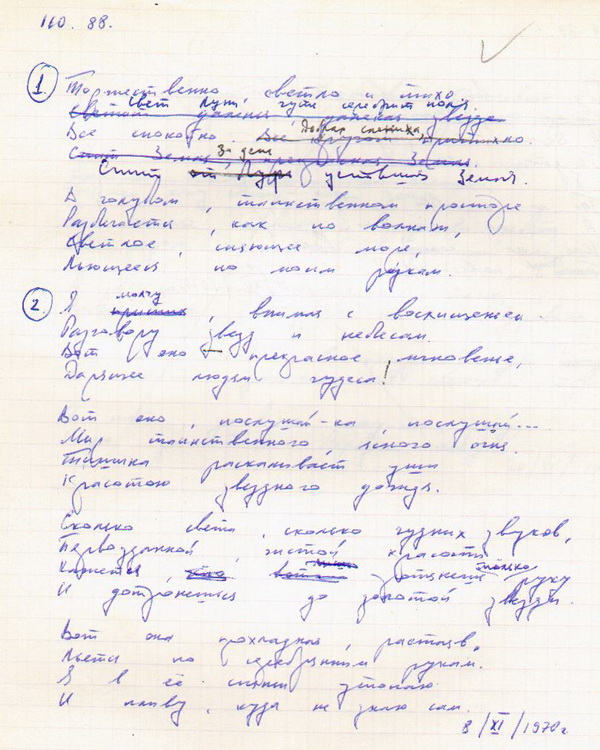 110. 88.
1. Торжественно, светло и тихо.
Свет Луны, чуть серебрит поля.
Светит далекая, далекая звезда
Добрая
Все спокойно Все кругом притихло.
За день
Спит Земля, прекрасная Земля.
Спит уставшая Земля.
В голубом, таинственном просторе
Разливается, как по волнам,
Светлое, сияющее море,
Льющееся по моим рукам.
молчу
2. Я притих, внимая с восхищеньем
Разговору звезд и небесам.
Вот оно прекрасное мгновенье,
Дарящее людям чудеса!
Вот оно, послушай-ка, послушай...
Мир таинственного, ясного огня.
Тишина раскалывает уши
Красотою звездного дождя.
Сколько света, сколько чудных звуков,
Первозданной, чистой красоты
только
Кажется, что вот протянешь руку
И дотронешься до золотой звезды.
Вот она прохладная, растаяв,
Льется по серебряным рукам.
Я в её сиянии утопаю
И плыву, куда не знаю сам.
8/XI/1970г